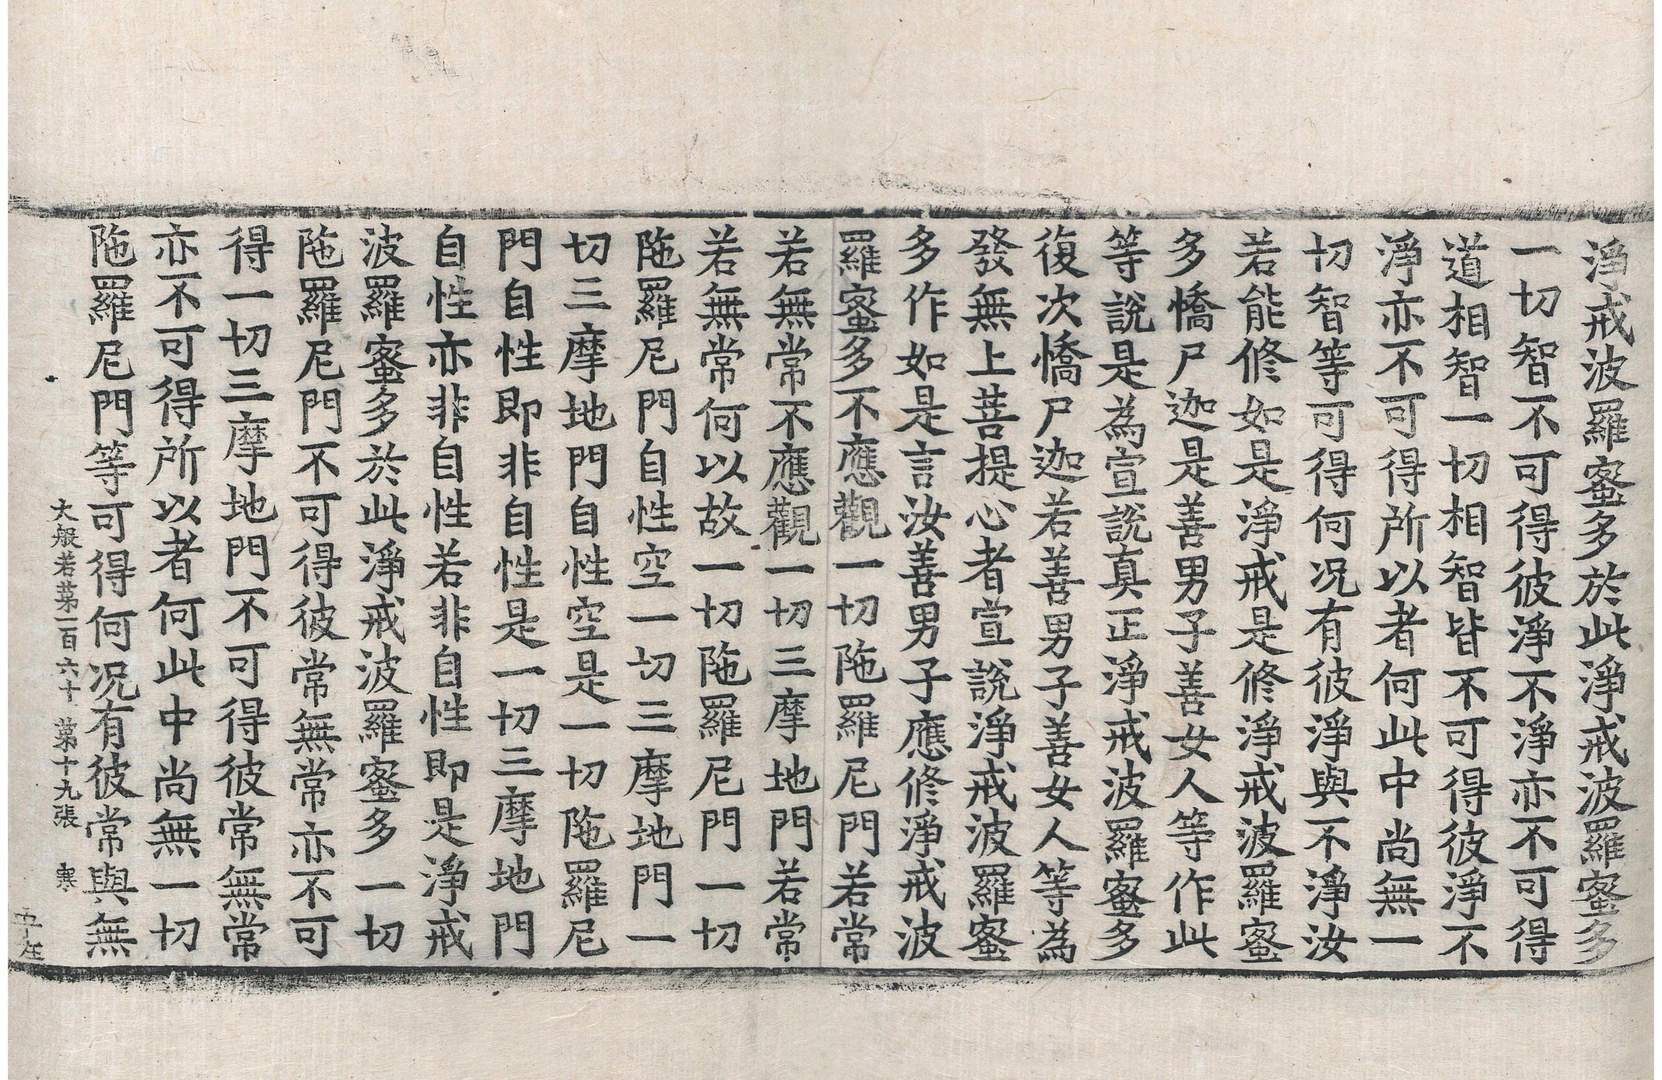 淨戒波羅蜜多於此淨戒波羅蜜多
一切智不可得彼淨不淨亦不可得
道相智一切相智皆不可得彼淨不
淨亦不可得所以者何此中尚無一
切智等可得何况有彼淨與不淨汝
若能修如是淨戒是修淨戒波羅蜜
多憍尸迦是善男子善女人等作此
等說是為宣說真正淨戒波羅蜜多
復次憍尸迦若善男子善女人等為
發無上菩提心者宣說淨戒波羅蜜
多作如是言汝善男子應修淨戒波
羅蜜多不應觀一切陁羅尼門若常
若無常不應觀一切三摩地門若常
若無常何以故一切陁羅尼門一切
陁羅尼門自性空一切三摩地門一
切三摩地門自性空是一切陁羅尼
門自性即非自性是一切三摩地門
自性亦非自性若非自性即是淨戒
波羅蜜多於此淨戒波羅蜜多一切
陁羅尼門不可得彼常無常亦不可
得一切三摩地門不可得彼常無常
亦不可得所以者何此中尚無一切
陁羅尼門等可得何况有彼常與無
大般若苐一百六十 苐十九張 寒